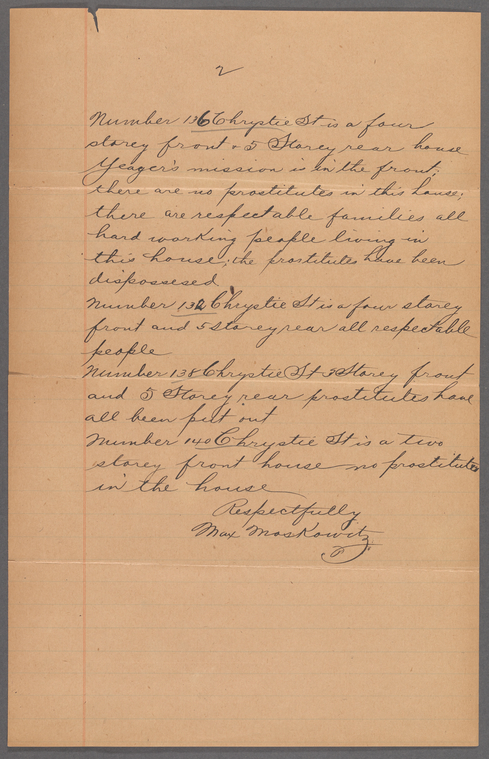 2
Number 136 Chrystie St is a four
storey front & 5 Storey rear house
Yeager's mission is in the front;
there are no prostitutes in this house;
there are respectable families all
hard working people living in
this house; the prostitutes have been
dispossesed
Number 132 Chrystie St is a four storey
front and 5 storey rear all respectable
people
Number 138 Chrystie St 2 Storey front
and 5 Storey rear prostitutes have
all been put out
Number 140 Chrystie St is a two
storey front house no prostitutes
in the house
Respectfully
Max Moskowitz